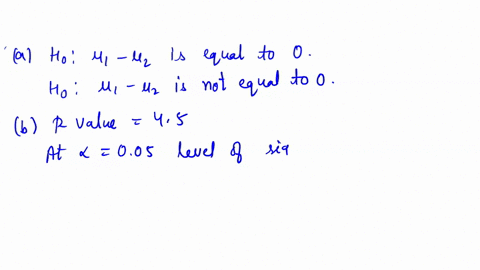 (a) H₀: μ₁ - μ₂ is equal to 0.
H₀: μ₁ - μ₂ is not equal to 0.
(b) P value = 4.5
At α = 0.05 level of sig